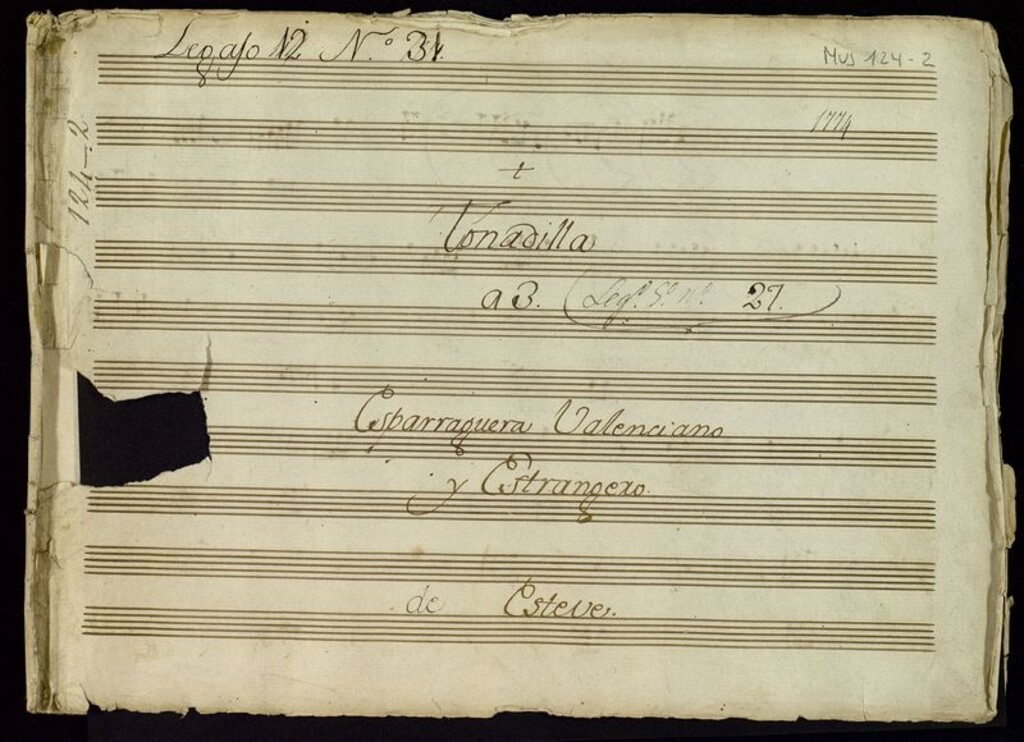 Legajo 12 N.º 31.
Mus 124-2
1774
124-2
Tonadilla
a 3. (Leg.º 5.º n.º 27.)
Esparraguera Valenciano
y Estrangero.
de Esteve.